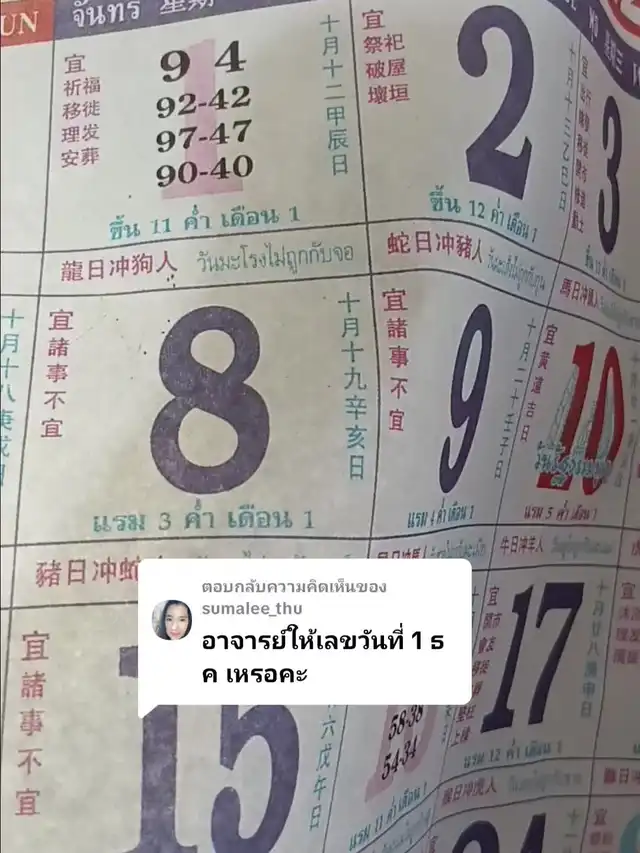 UN
จันทร์ 星期
宜
祈福
移徙
理发
安葬
9 4
92-42
97-47
90-40
1
十月十二甲辰日
ขึ้น 11 ค่ำ เดือน 1
龍日冲狗人 วันมะโรงไม่ถูกกับจอ
宜
祭祀
破屋
壞垣
2
十月十三乙巳日
ขึ้น 12 ค่ำ เดือน 1
蛇日冲豬人
宜
3
十月十八庚戌日
宜諸事不宜
8
十月十九辛亥日
แรม 3 ค่ำ เดือน 1
豬日冲蛇
宜諸事不宜
9
十月二十壬子日
แรม 4 ค่ำ เดือน 1
宜黄道吉日
10
แรม 5 ค่ำ เดือน 1
牛日冲羊人
宜諸事不宜
15
六戊午日
58-38
54-34
แรม 11 ค่ำ เดือน 1
宜
開市
17
十月廿八庚申日
แรม 12 ค่ำ เดือน 1
猴日冲虎人
宜
24
ตอบกลับความคิดเห็นของ
sumalee_thu
อาจารย์ให้เลขวันที่ 1 ธ
ค เหรอคะ